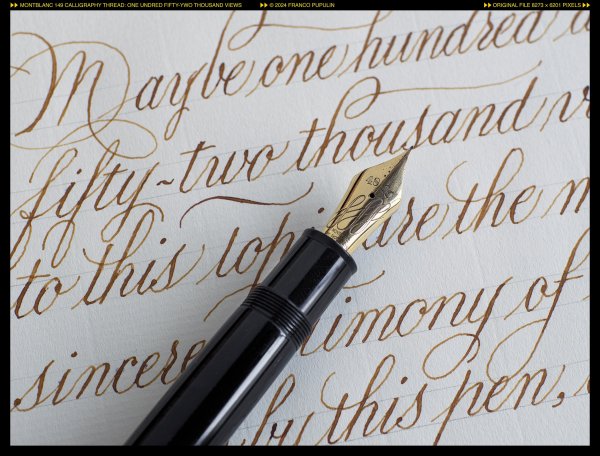 ▶▶ MONTBLANC 149 CALLIGRAPHY THREAD: ONE UNDRED FIFTY-TWO THOUSAND VIEWS ▶▶ © 2024 FRANCO PUPULIN ▶▶ ORIGINAL FILE 8273 × 6201 PIXELS ▶▶
Maybe one hundred a
fifty-two thousand
to this topic are the m
sincere timony of
by this pen,